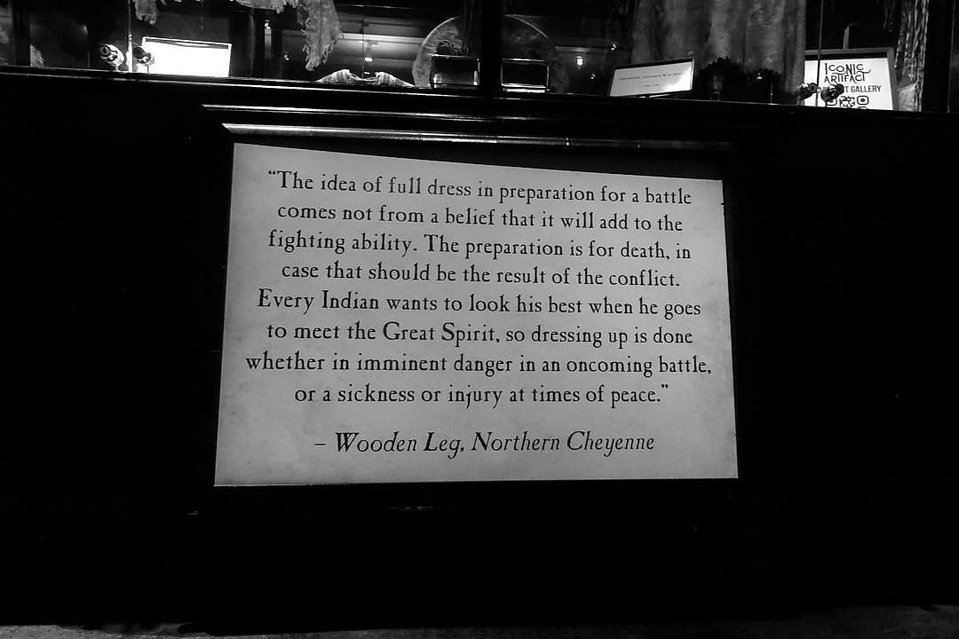 ICONIC
ARTIFACT
GALLERY
“The idea of full dress in preparation for a battle
comes not from a belief that it will add to the
fighting ability. The preparation is for death, in
case that should be the result of the conflict.
Every Indian wants to look his best when he goes
to meet the Great Spirit, so dressing up is done
whether in imminent danger in an oncoming battle,
or a sickness or injury at times of peace.”
– Wooden Leg, Northern Cheyenne